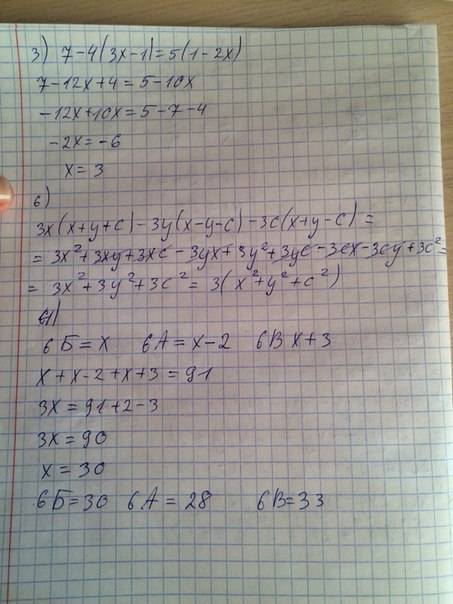 3) 7-4(3x-1)=5(1-2x)
7-12x+4=5-10x
-12x+10x=5-7-4
-2x=-6
x=3
6)
3x(x+y+c)-3y(x-y-c)-3c(x+y-c)=
=3x²+3xy+3xc-3yx+3y²+3yc-3cx-3cy+3c²=
=3x²+3y²+3c²=3(x²+y²+c²)
6Б=x 6А=x-2 6В x+3
x+x-2+x+3=91
3x=91+2-3
3x=90
x=30
6Б=30 6А=28 6В=33